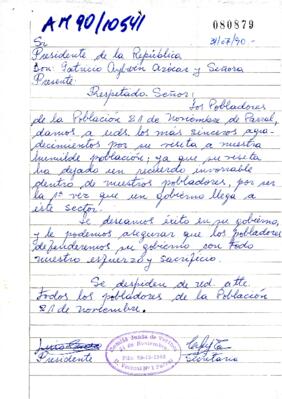 AM 90/10541
080879
31/07/90.-
Sr.
Presidente de la República
Don: Patricio Aylwin Azócar y Señora
Presente:
Respetado Señor:
Los Pobladores
de la Población 21 de Noviembre de Parral,
damos a uds los más sinceros agra-
decimientos por su visita a nuestra
humilde población; ya que su visita
ha dejado un recuerdo invorable
dentro de nuestros pobladores, por ser
la 1ª vez que un gobierno llega a
este sector.
Le deseamos éxito en su gobierno,
y le podemos asegurar que los pobladores
defenderemos su gobierno con todo
nuestro esfuerzo y sacrificio.
Se despiden de ud. atte.
Todos los pobladores de la Población
21 de noviembre.
Comité Junta de Vecinos
21 de Noviembre
Presidente
Secretaria